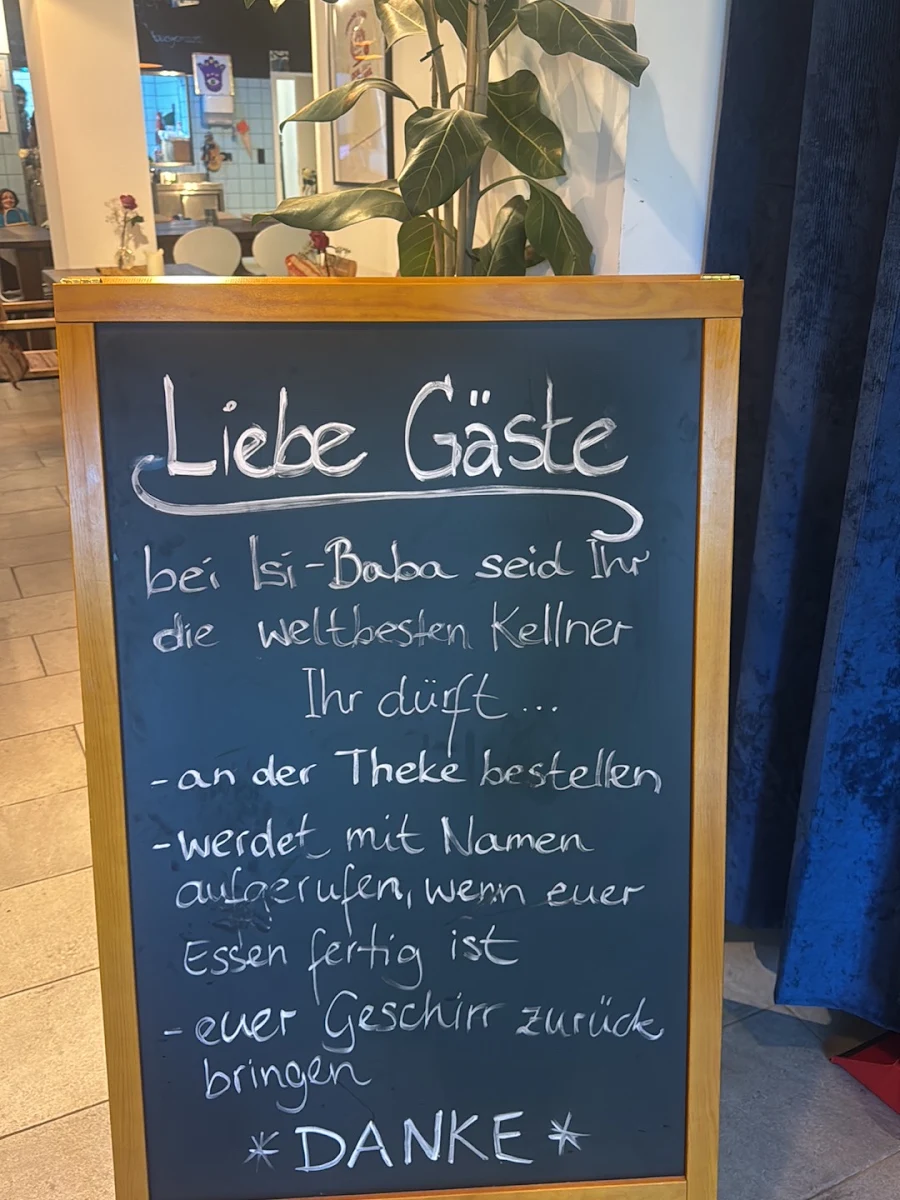 Liebe Gäste
bei Isi-Baba seid Ihr
die weltbesten Kellner
Ihr dürft...
- an der Theke bestellen
- werdet mit Namen
aufgerufen, wenn euer
Essen fertig ist
- euer Geschirr zurück
bringen
* DANKE *